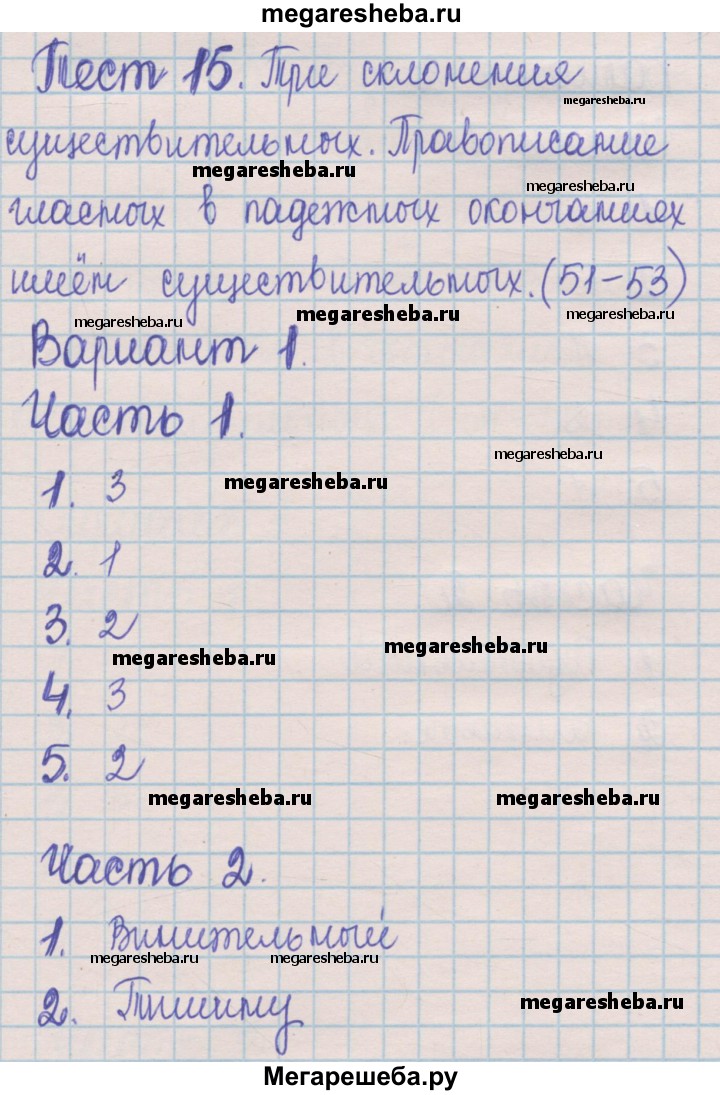 megaresheba.ru
Тест 15. Три склонения
megaresheba.ru
существительных. Правописание
megaresheba.ru
megaresheba.ru
гласных в падежных окончаниях
имён существительных. (51-53)
megaresheba.ru
megaresheba.ru
megaresheba.ru
Вариант 1.
Часть 1.
megaresheba.ru
1. 3
megaresheba.ru
2. 1
3. 2
megaresheba.ru
megaresheba.ru
4. 3
5. 2
megaresheba.ru
megaresheba.ru
Часть 2.
1. Винительный
megaresheba.ru
megaresheba.ru
2. Тишину
megaresheba.ru
Мегарешеба.ру